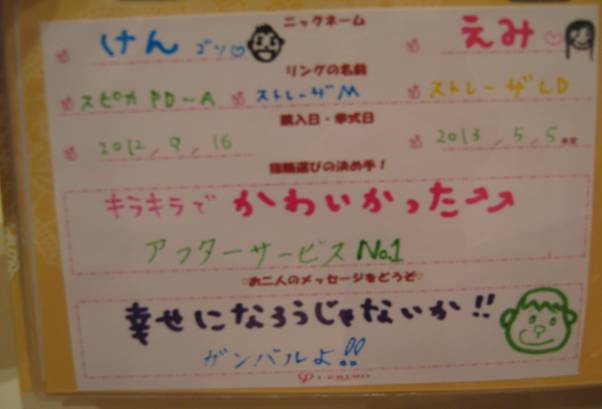 ニックネーム
けん ゴリ♡ えみ♡
リングの名前
スピカ PD-A ストレーザM ストレーザLD
購入日・挙式日
2012, 9, 16 2013, 5, 5
指輪選びの決め手!
キラキラで かわいかった↗↗
アフターサービス No.1
♡お二人のメッセージをどうぞ♡
幸せになろうじゃないか!!
ガンバルよ!!
I-PRIMO